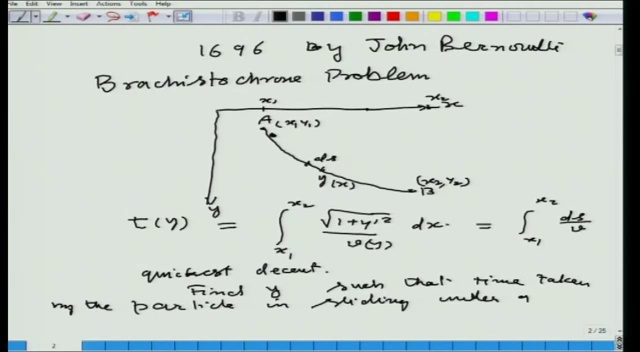 Edit View Insert Actions Tools Help
1696 By John Bernoulli
Brachistochrone Problem
x₁ x₂ x
A (x₁, y₁)
ds
y(x)
(x₂, y₂)
B
y
t(y) = ∫_{x₁}^{x₂} √(1+y'²) / v(y) dx. = ∫_{x₁}^{x₂} ds/v
quickest decent.
Find y such that time taken
by the particle in sliding under
2 / 25
2